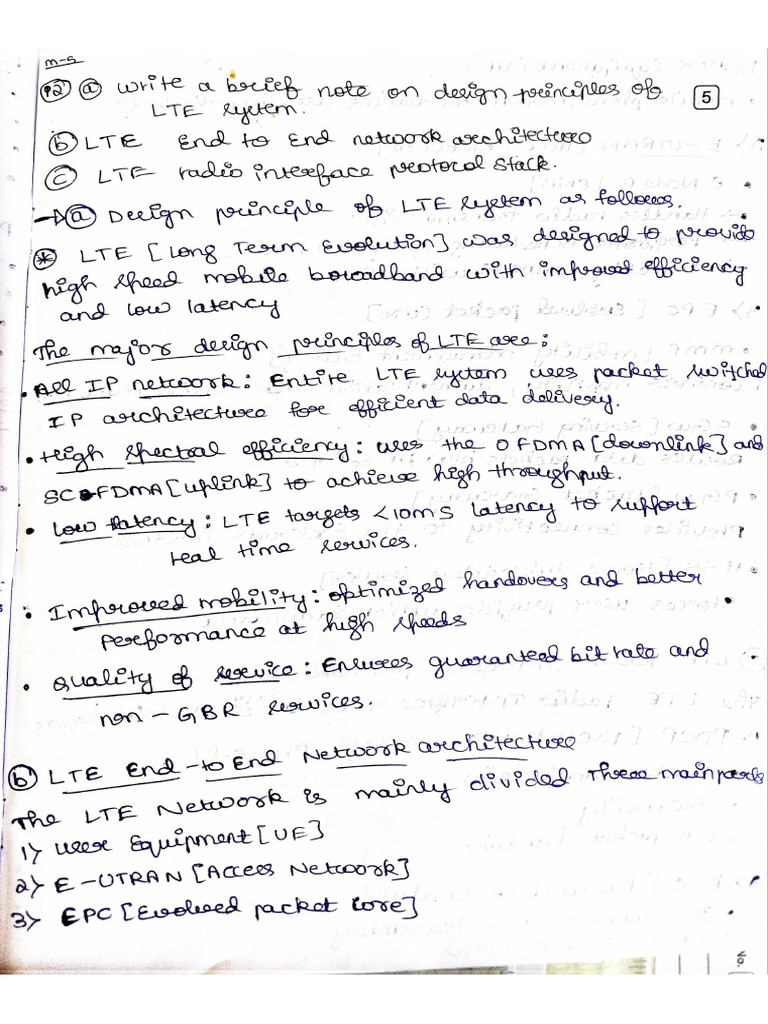 m-5
Q2) a) write a brief note on design principles of
LTE system.
5
b) LTE End to End network architecture
c) LTE radio interface protocol stack.
→ a) Design principle of LTE system as follows.
* LTE [Long Term Evolution] was designed to provide
high speed mobile broadband with improved efficiency
and low latency
The major design principles of LTE are:
• All IP network: Entire LTE system uses packet switched
IP architecture for efficient data delivery.
• High spectral efficiency: uses the OFDMA [downlink] and
SC-FDMA [uplink] to achieve high throughput.
• Low latency: LTE targets <10ms latency to support
real time services.
• Improved mobility: optimized handovers and better
performance at high speeds
• Quality of service: Ensures guaranteed bit rate and
non-GBR services.
b) LTE End-to End Network architecture
The LTE Network is mainly divided Three main parts
1) User Equipment [UE]
2) E-UTRAN [Access Network]
3) EPC [Evolved packet core]